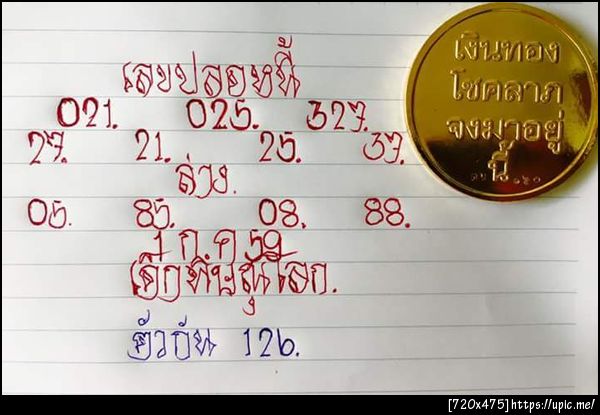 เลขปลดหนี้
021. 025. 327.
27. 21. 25. 37.
ล่าง.
05. 85. 08. 88.
1 ก.ค 59
เจ๊กพิษณุโลก.
ตัวกัน 126.
เงินทอง
โชคลาภ
จงมาอยู่
นี้
[720x475]https://upic.me/